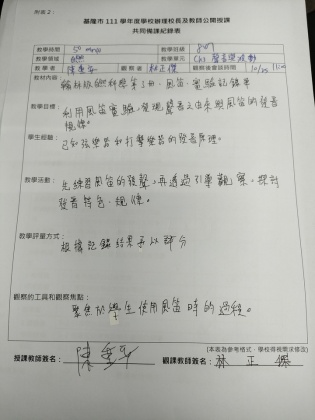 附表2:
基隆市 111 學年度學校辦理校長及教師公開授課
共同備課紀錄表
教學時間 50 mins 教學班級 807
教學領域 教學單元 Ch3 聲音與波動
教學者 觀察者 林正傑 觀察後會談時間
教材內容:
翰林版 第3冊、風笛、實驗記錄單
教學目標:
利用風笛實驗,發現聲音之由來與風笛的發音
規律。
學生經驗:
已知弦樂器和打擊樂器的發音原理。
教學活動:
先練習風笛的發聲,再透過引導觀察,探討
發音特色、規律。
教學評量方式:
根據記錄結果予以評分
觀察的工具和觀察焦點:
聚焦於學生使用風笛時的過程。
(本表為參考格式,學校得視需求修改)
授課教師簽名: 陳 觀課教師簽名: 林正傑